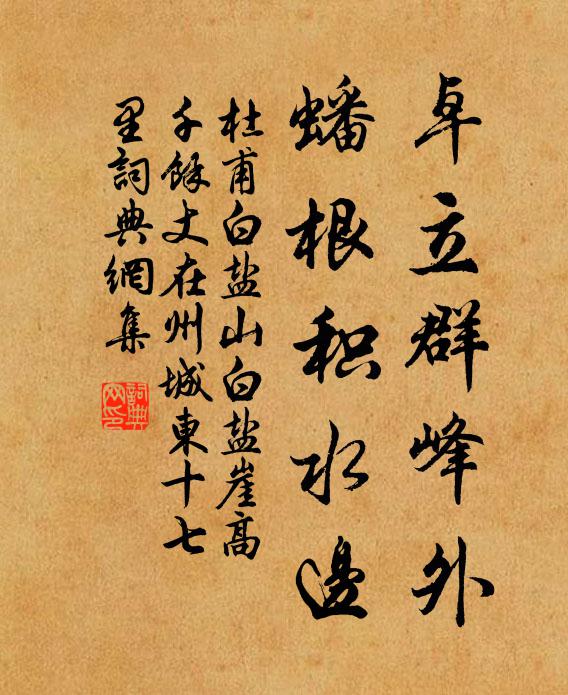 卓立群峰外
蟠根积水邊
杜甫白盐山白盐崖高
千餘丈在州城東十七
里詞典網集
詞典網印